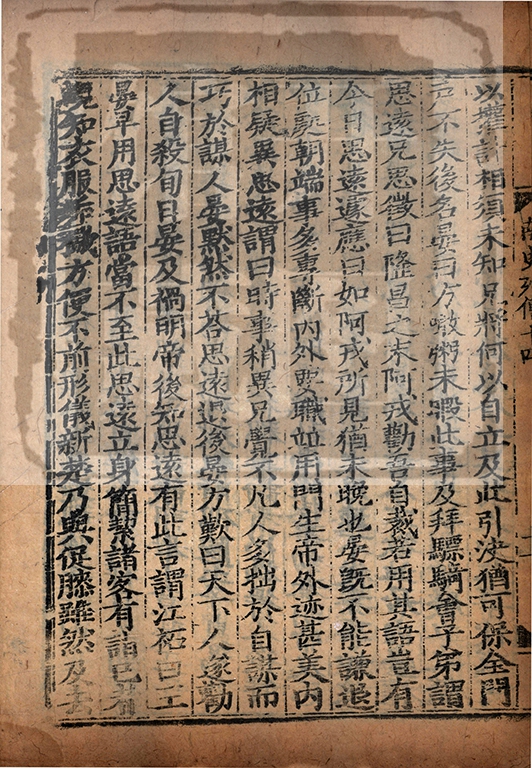 以權計相須未知兄將何以自立及此引决猶可保全門
户不失後名晏曰方噉粥未暇此事及拜驃騎會子弟謂
思遠兄思徵曰隆昌之末阿戎勸吾自裁若用其語豈有
今日思遠遽應曰如阿戎所見猶未晚也晏既不能謙退
位處朝端事多專斷内外要職並用門生帝外迹甚美内
相疑異思遠謂曰時事稍異兄覺不凡人多拙於自謀而
巧於謀人晏默然不荅思遠退後晏方歎曰天下人遂勸
人自殺旬日晏及禍明帝後知思遠有此言謂江祏曰王
晏早用思遠語當不至此思遠立身簡絜諸客有詣已者
覘知衣服垢穢方便不前形儀新楚乃與促膝雖然及去